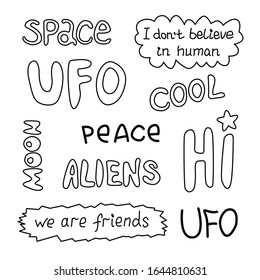 space
I don't believe
in human
UFO
COOL
MOON
PEACE
Hi
ALIENS
we are friends
UFO
shutterstock.com · 1644810631